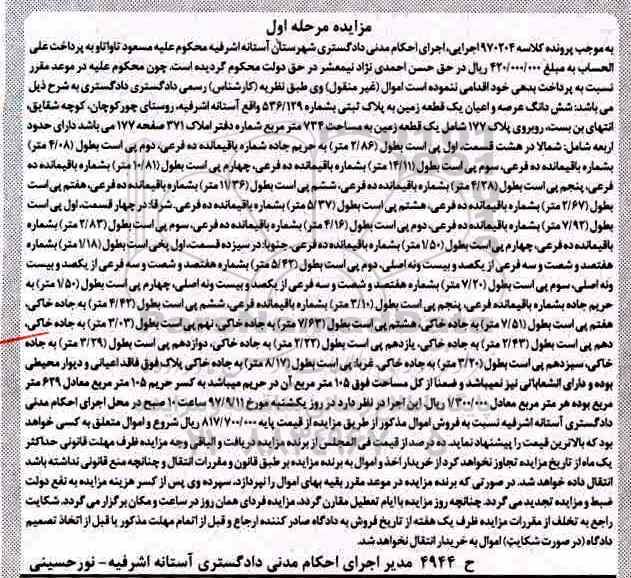 مزایده مرحله اول
به موجب پرونده کلاسه ۹۷۰۲۰۴ اجرایی، اجرای احکام مدنی دادگستری شهرستان آستانه اشرفیه محکوم علیه مسعود تاواتاو به پرداخت علی
الحساب به مبلغ ۴۲۰/۰۰۰/۰۰۰ ریال در حق حسن احمدی نژاد نیمعشر در حق دولت محکوم گردیده است. چون محکوم علیه در موعد مقرر
نسبت به پرداخت بدهی خود اقدامی ننموده است اموال (غیر منقول) وی طبق نظریه (کارشناس) رسمی دادگستری دادگستری به شرح ذیل
می باشد: شش دانگ عرصه و اعیان یک قطعه زمین به پلاک ثبتی بشماره ۵۳۶/۱۲۹ واقع آستانه اشرفیه، روستای چورکوچان، کوچه شقایق،
انتهای بن بست، روبروی پلاک ۱۷۷ شامل یک قطعه زمین به مساحت ۷۳۴ متر مربع شماره دفتر املاک ۳۷۱ صفحه ۱۷۷ می باشد دارای حدود
اربعه شامل: شمالا در هشت قسمت، اول پی است بطول (۲/۸۶ متر) به حریم جاده شماره باقیمانده ده فرعی، دوم پی است بطول (۴/۰۸ متر)
بشماره باقیمانده ده فرعی، سوم پی است بطول (۱۴/۱۱ متر) بشماره باقیمانده ده فرعی، چهارم پی است بطول (۱۰/۸۱ متر) بشماره باقیمانده ده
فرعی، پنجم پی است بطول (۴/۳۸ متر) بشماره باقیمانده ده فرعی، ششم پی است بطول (۱۱/۳۶ متر) بشماره باقیمانده ده فرعی، هفتم پی است
بطول (۲/۶۷ متر) بشماره باقیمانده ده فرعی، هشتم پی است بطول (۵/۳۷ متر) بشماره باقیمانده ده فرعی. شرقا: در چهار قسمت، اول پی است
بطول (۷/۹۲ متر) بشماره باقیمانده ده فرعی، دوم پی است بطول (۴/۱۶ متر) بشماره باقیمانده ده فرعی، سوم پی است بطول (۲/۸۳ متر) بشماره
باقیمانده ده فرعی، چهارم پی است بطول (۱/۵۰ متر) بشماره باقیمانده ده فرعی. جنوبا: در سیزده قسمت، اول پخی است بطول (۱/۱۸ متر) بشماره
هفتصد و شصت و سه فرعی از یکصد و بیست ونه اصلی، دوم پی است بطول (۵/۴۲ متر) بشماره هفتصد و شصت و سه فرعی از یکصد و بیست
ونه اصلی، سوم پی است بطول (۷/۲۰ متر) بشماره هفتصد و شصت و سه فرعی از یکصد و بیست ونه اصلی، چهارم پی است بطول (۱/۵۰ متر) به
حریم جاده بشماره باقیمانده فرعی، پنجم پی است بطول (۳/۱۰ متر) بشماره باقیمانده فرعی، ششم پی است بطول (۴/۴۲ متر) به جاده خاکی،
هفتم پی است بطول (۷/۵۱ متر) به جاده خاکی، هشتم پی است بطول (۷/۶۳ متر) به جاده خاکی، نهم پی است بطول (۳/۰۳ متر) به جاده خاکی،
دهم پی است بطول (۲/۴۳ متر) به جاده خاکی، یازدهم پی است بطول (۲/۲۲ متر) به جاده خاکی، دوازدهم پی است بطول (۳/۲۹ متر) به جاده
خاکی، سیزدهم پی است بطول (۳/۲۰ متر) به جاده خاکی. غربا: پی است بطول (۸/۱۷ متر) به جاده خاکی پلاک فوق فاقد اعیانی و دیوار محیطی
بوده و دارای انشعاباتی نیز نمیباشد و ضمنا از کل مساحت فوق ۱۰۵ متر مربع آن در حریم میباشد به کسر حریم ۱۰۵ متر مربع معادل ۶۲۹ متر
مربع بوده هر متر مربع معادل ۱/۳۰۰/۰۰۰ ریال این اجرا در نظر دارد در روز یکشنبه مورخ ۹۷/۹/۱۱ ساعت ۱۰ صبح در محل اجرای احکام مدنی
دادگستری آستانه اشرفیه نسبت به فروش اموال مذکور از طریق مزایده از قیمت پایه ۸۱۷/۷۰۰/۰۰۰ ریال شروع و اموال متعلق به کسی خواهد
بود که بالاترین قیمت را پیشنهاد نماید. ده درصد از قیمت فی المجلس از برنده مزایده دریافت و الباقی وجه مزایده ظرف مهلت قانونی حداکثر
یک ماه از تاریخ مزایده تجاوز نخواهد کرد از خریدار اخذ و اموال به برنده مزایده بر طبق قانون و مقررات انتقال و چنانچه منع قانونی نداشته باشد
انتقال داده خواهد شد. در صورتی که برنده مزایده در موعد مقرر بقیه بهای اموال را نپردازد، سپرده وی پس از کسر هزینه مزایده به نفع دولت
ضبط و مزایده تجدید می گردد. چنانچه روز مزایده با ایام تعطیل مقارن گردد. مزایده فردای همان روز در ساعت و مکان برگزار می گردد. شکایت
راجع به تخلف از مقررات مزایده ظرف یک هفته از تاریخ فروش به دادگاه صادر کننده ارجاع و قبل از اتمام مهلت مذکور یا قبل از اتخاذ تصمیم
دادگاه (در صورت شکایت) اموال به خریدار انتقال نخواهد شد.
ح ۴۹۴۴ مدیر اجرای احکام مدنی دادگستری آستانه اشرفیه - نورحسینی